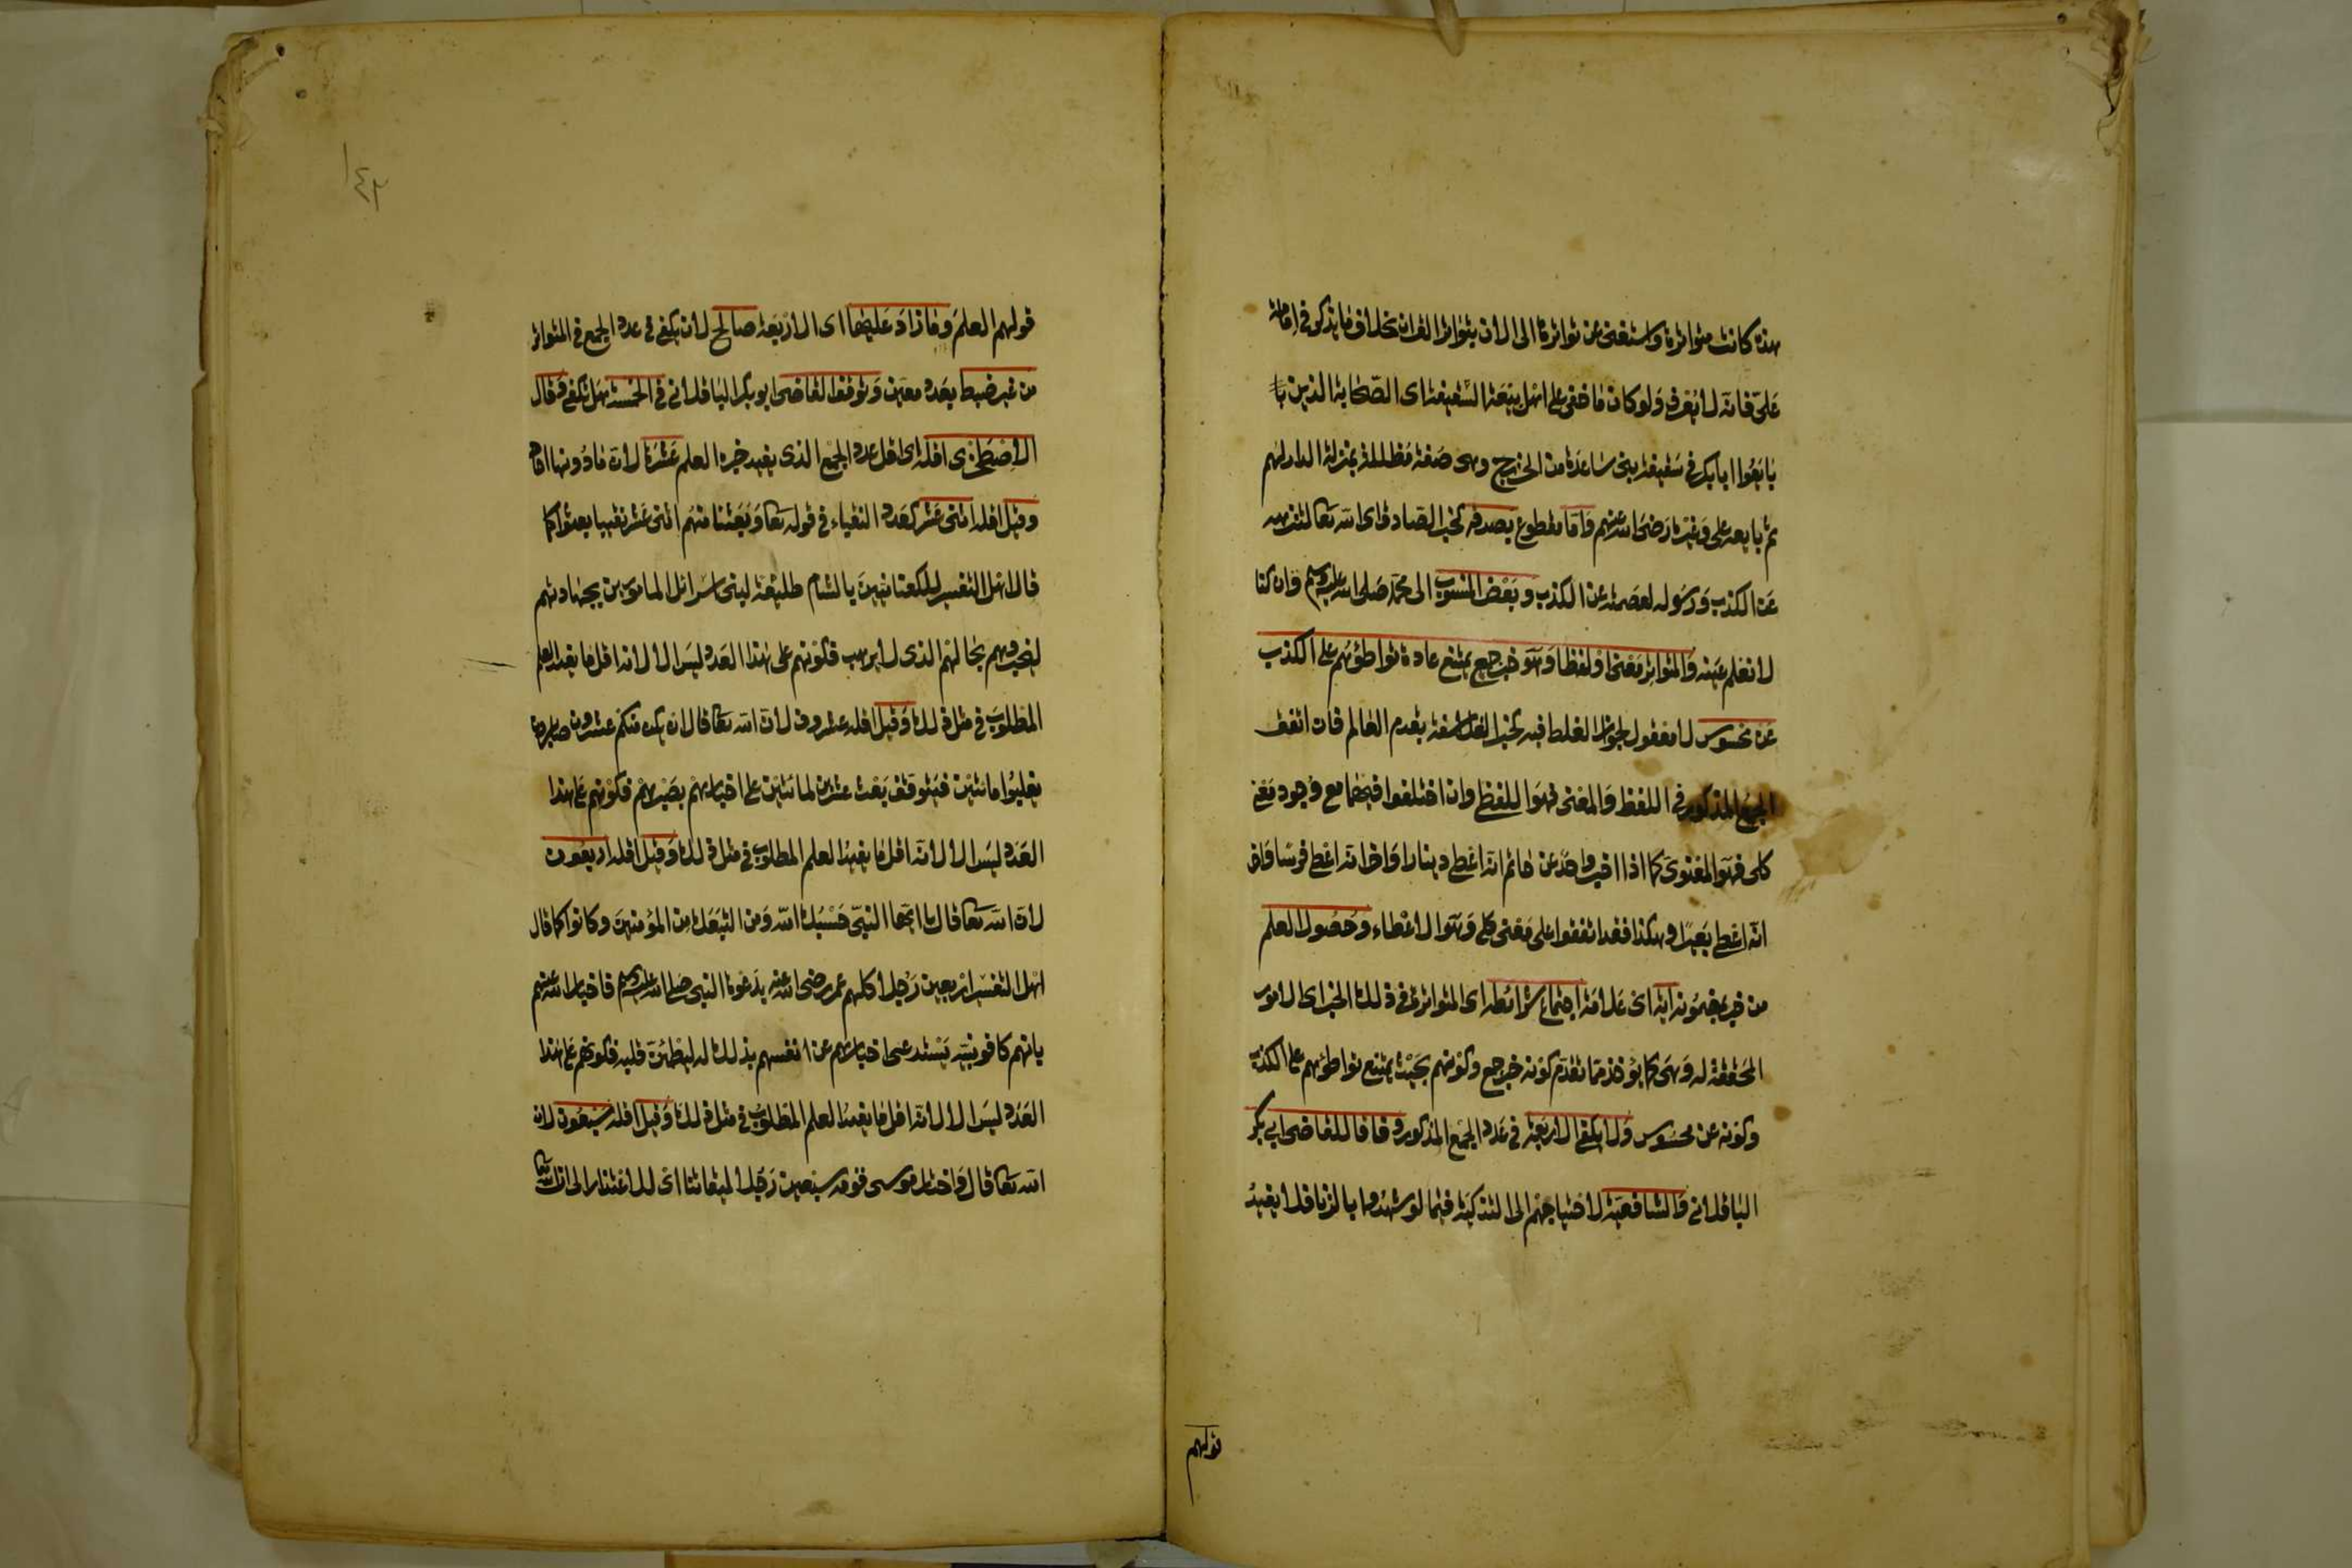 هذه كانت متواترة واستغنى عن تواترها الى الان بتواتر القران بخلاف ما يذكر في امامة
علي فانه لا يعرف ولو كان ما خفي على اهل بيعة السقيفة اى الصحابة الذين با
بايعوا ابا بكر في سقيفة بني ساعدة من الخزرج وهى صفة مظللة بمنزلة الدار لهم
ثم بايعه على وغيره رضى الله عنهم واما مقطوع بصدقه كخبر الصادق اى الله تعالى لتنزهه
عن الكذب ورسوله لعصمته عن الكذب وبعض المنسوب الى محمد صلى الله عليه وسلم وان كنا
لا نعلم عينه والمتواتر معنى او لفظا وهو خبر جمع يمتنع عادة تواطؤهم على الكذب
عن محسوس لا معقول لجواز الغلط فيه كخبر الفلاسفة بقدم العالم فان اتفق
الجمع المذكور في اللفظ والمعنى فهو اللفظي وان اختلفوا فيهما مع وجود معنى
كلى فهو المعنوى كما اذا اخبر واحد عن حاتم انه اعطى دينارا واخر انه اعطى فرسا واخر
انه اعطى بعيرا وهكذا فقد اتفقوا على معنى كلى وهو الاعطاء وحصول العلم
من خبر بمضمونه اية اى علامة اجتماع شرائطه اى المتواتر في ذلك الخبر اى الامور
المحققة له وهى كما يؤخذ مما تقدم كونه خبر جمع وكونهم بحيث يمتنع تواطؤهم على الكذب
وكونه عن محسوس ولا يكفى الاربعة في عدد الجمع المذكور وفاقا للقاضى ابى بكر
الباقلاني والشافعية لاحتياجهم الى التزكية فيما لو شهدوا بالزنا فلا يفيد
قولهم
١٤٢
قولهم العلم وما زاد عليها اى الاربعة صالح لان يكفى في عدد الجمع في المتواتر
من غير ضبط بعدد معين وتوقف القاضى ابو بكر الباقلاني في الخمسة هل تكفى وقال
الاصطخرى اقله اى اقل عدد الجمع الذى يفيد خبره العلم عشرة لان ما دونها احاد
وقيل اقله اثنى عشر كعدد النقباء في قوله تعا وبعثنا منهم اثنى عشر نقيبا بعثوا كما
قال اهل التفسير للكنعانيين بالشام طليعة لبنى اسرائل المامورين بجهادهم
ليخبروهم بحالهم الذى لا يرهب فكونهم على هذا العدد ليس الا لانه اقل ما يفيد العلم
المطلوب في مثل ذلك وقيل اقله عشرون لان الله تعا قال ان يكن منكم عشرون صابرون
يغلبوا مائتين فيتوقف بعث عشرين لمائتين على اخبارهم بصبرهم فكونهم على هذا
العدد ليس الا لانه اقل ما يفيد العلم المطلوب في مثل ذلك وقيل اقله اربعون
لان الله تعا قال يا ايها النبي حسبك الله ومن اتبعك من المؤمنين وكانوا كما قال
اهل التفسير اربعين رجلا كلهم عمر رضى الله عنه بدعوة النبي صلى الله عليه وسلم فاخبار الله عنهم
بانهم كافو نبيه يستدعى اخبارهم عن انفسهم بذلك له ليطمئن قلبه فكونهم على هذا
العدد ليس الا لانه اقل ما يفيد العلم المطلوب في مثل ذلك وقيل اقله سبعون لان
الله تعا قال واختار موسى قومه سبعين رجلا لميقاتنا اى للاعتذار الى الله تعا